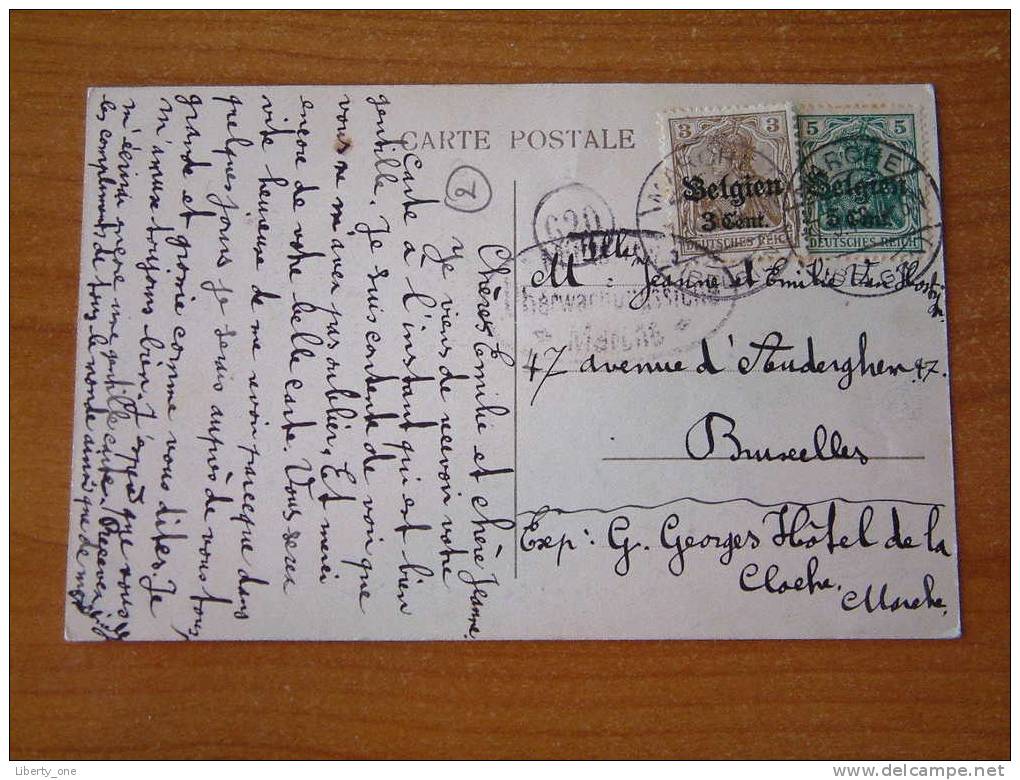 CARTE POSTALE
3 3
Belgien
3 Cent.
DEUTSCHES REICH
5 5
Belgien
5 Cent.
DEUTSCHES REICH
MARCHE
MARCHE
Marche
Melles Jeanne et Emilie Van
47 avenue d'Auderghem 47.
Bruxelles
Exp: G. Georges Hôtel de la
Cloche.
Marche.
Chères Emilie et chère Jeanne.
Je viens de recevoir votre
carte à l'instant qui est bien
gentille. Je suis contente de voir que
vous ne m'avez pas oublier, Et merci
encore de votre belle carte. Vous serez
vite heureuse de me revoir parceque dans
quelques jours je serais auprès de vous tous,
grande et grosse comme vous dites. Je
m'amuse toujours bien. J'espère que vous
m'écrirez encore une gentille carte. Recevez
les compliments de tous le monde ainsi que de moi
Liberty_one